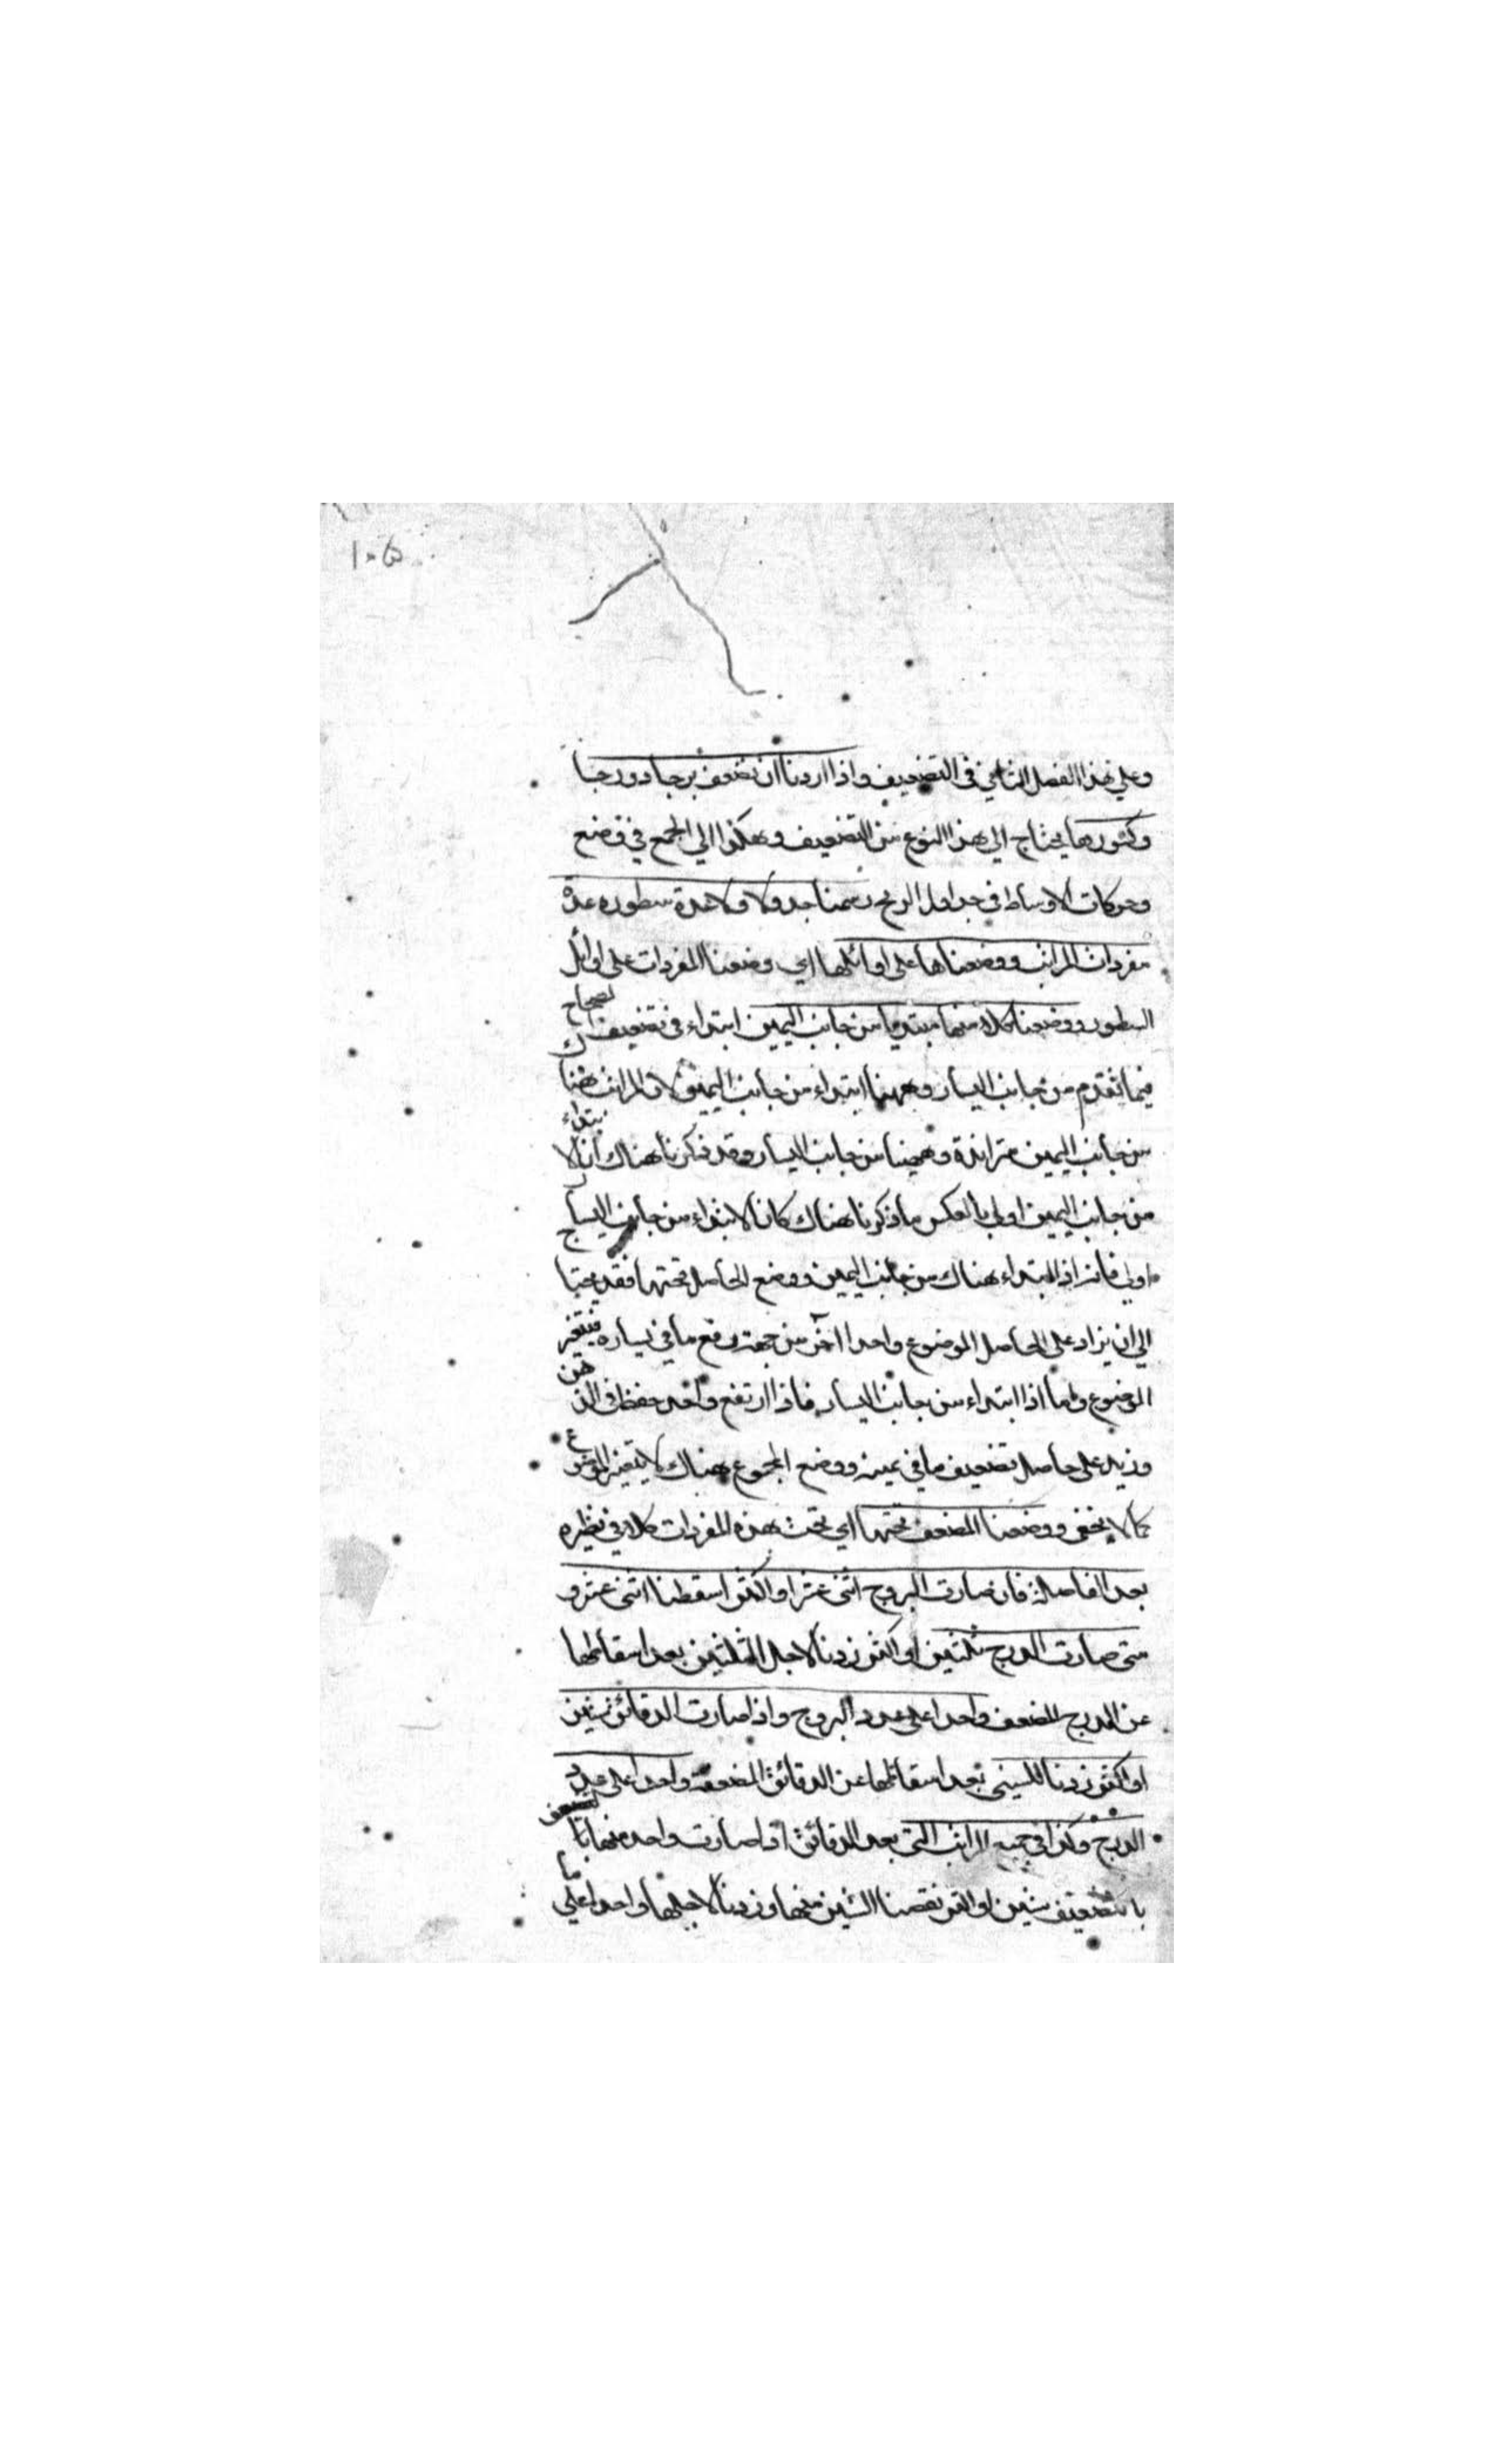 ١٠٥
وعلي هذا الفصل الثاني في التضعيف واذا اردنا ان نضعف برجا ودرجا
وكسورها يحتاج الي هذا النوع من التضعيف وهكذا الي الجمع في وضع
وحركات الاوساط في جداول الزيج رسمنا جدولا ولا عدة سطوره عدة
مفردات المراتب ووضعناها علي اوائلها اي وضعنا المفردات علي اوائل
السطور ووضعنا كلا منها مبتديا من جانب اليمين ابتداء في تضعيف الصحاح
فيما تقدم من جانب اليسار وههنا ابتداء من جانب اليمين لان المراتب هنا
من جانب اليمين متزايدة وههنا من جانب اليسار وقد ذكرنا هناك ان الابتداء
من جانب اليمين اولي بالعكس ما ذكرنا هناك كان الابتداء من جانب اليسار
اولي فانه اذا ابتداء هناك من جانب اليمين ووضع الحاصل تحتها فقد يحتاج
الي ان يزاد علي الحاصل الموضوع واحدا آخر من جهة رفع ما في يساره فيتغير
الموضوع واما اذا ابتداء من جانب اليسار فاذا ارتفع واحد حفظ في الذهن
وزيد علي حاصل تضعيف ما في يمينه ووضع المجموع هناك لا يتغير الموضوع
كما لا يخفي ووضعنا المضعف تحتها اي تحت هذه المفردات كلا في نظيره
بعد الفاصلة فان صارت البروج اثني عشر او اكثر اسقطنا اثني عشر و
متي صارت الدرج ثلثين او اكثر زدنا لاجل الثلثين بعد اسقاطها
عن الدرج المضعف واحدا علي عدد البروج واذا صارت الدقائق ستين
او اكثر زدنا للستين بعد اسقاطها عن الدقائق المضعفة واحدا علي عدد
الدرج وكذا في جميع المراتب التي بعد الدقائق اذا صارت واحدة منها
بالتضعيف ستين او اكثر نقصنا الستين منها وزدنا لاجلها واحدا علي ما